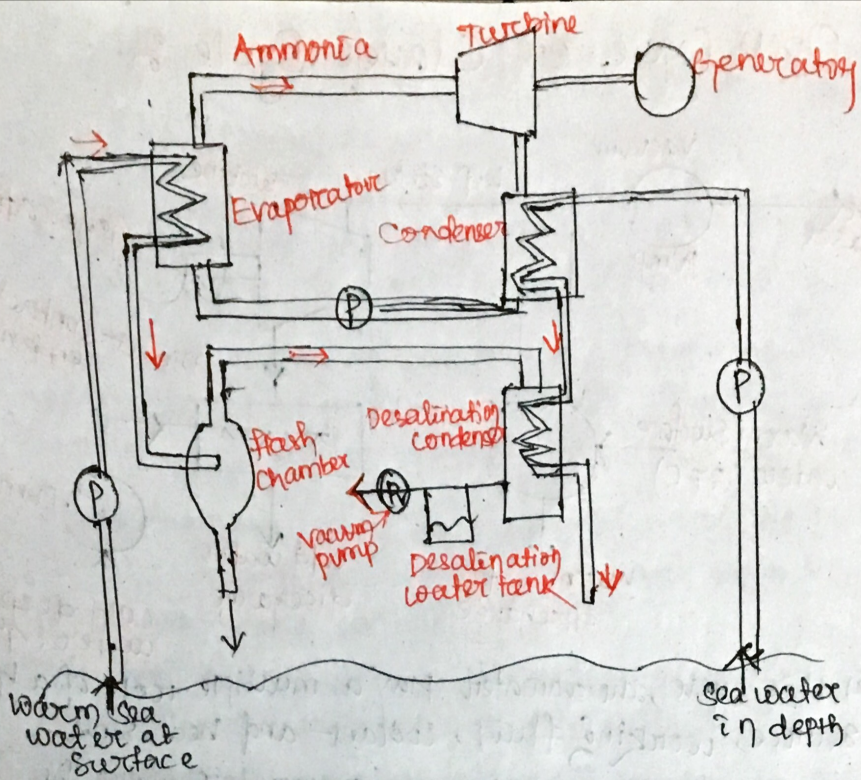 Ammonia
Turbine
Generator
Evaporator
Condenser
P
P
P
Flash
chamber
Desalination
condenser
P
vacuum
pump
Desalination
water tank
warm sea
water at
surface
sea water
in depth